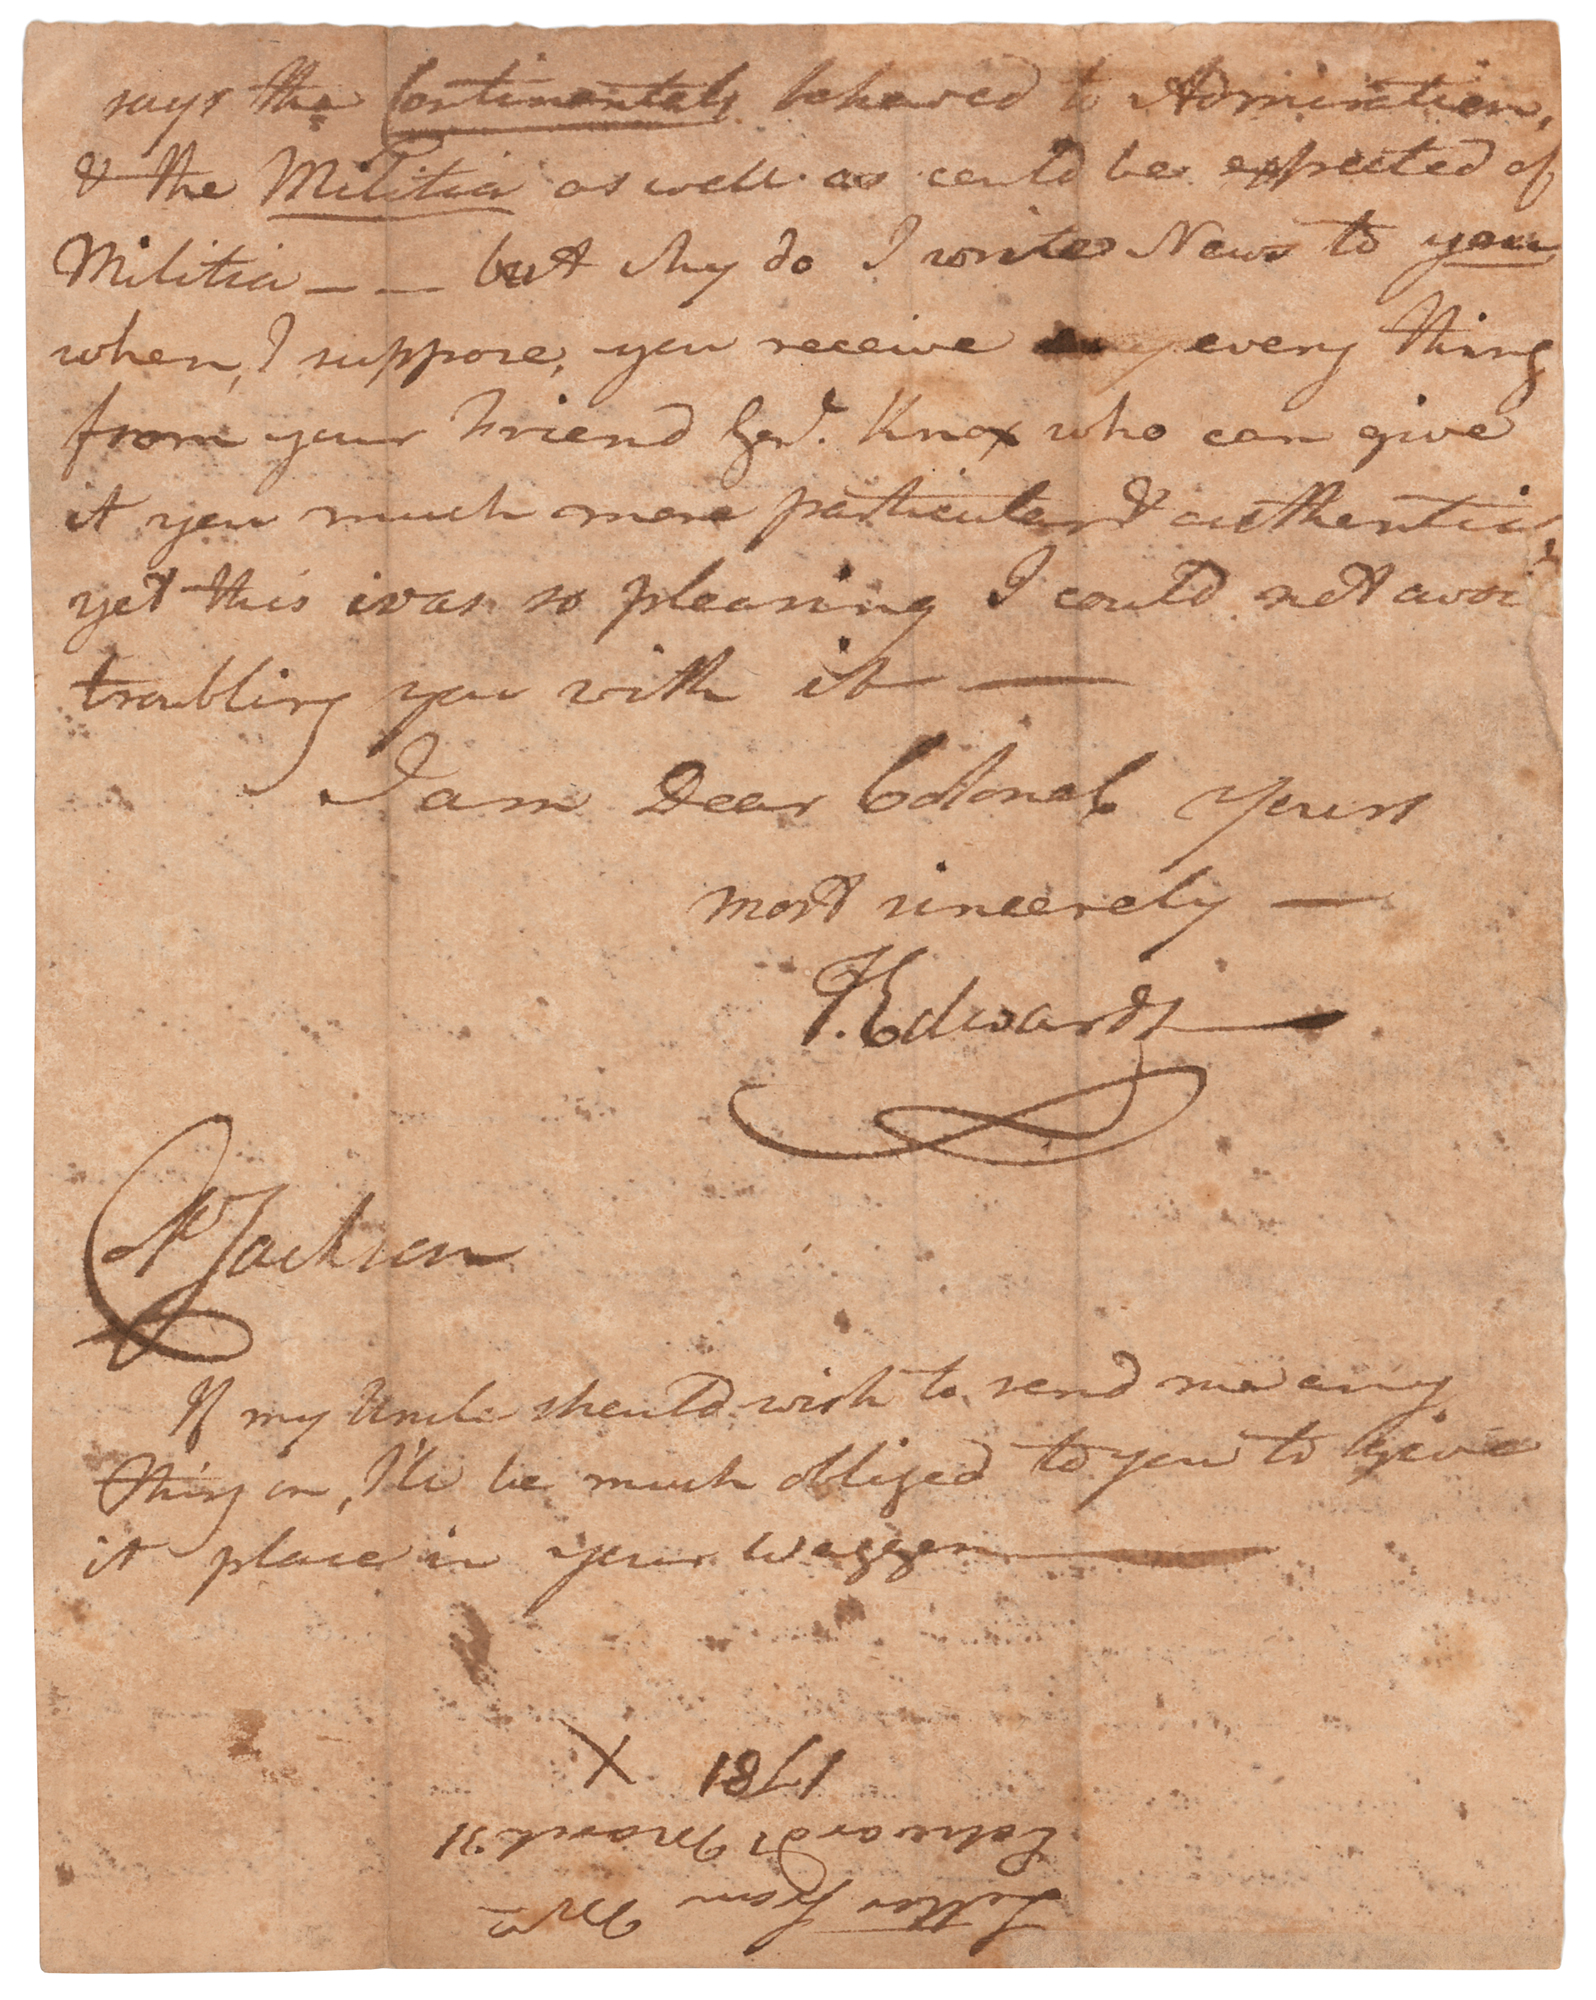 says the Continentals behaved to Admiration,
& the Militia as well as could be expected of
Militia — — but why do I write News to you,
when, I suppose, you receive every thing
from your Friend Genl. Knox who can give
it you much more particular & authentic,
yet this was so pleasing I could not avoi
troubling you with it —
I am Dear Colonel yours
most sincerely —
T. Edwards
Jackson
If my Uncle should wish to send me any
thing on, I'll be much obliged to you to give
it place in your waggon —
Letter from Mr.
Edwards March 31
1781 X